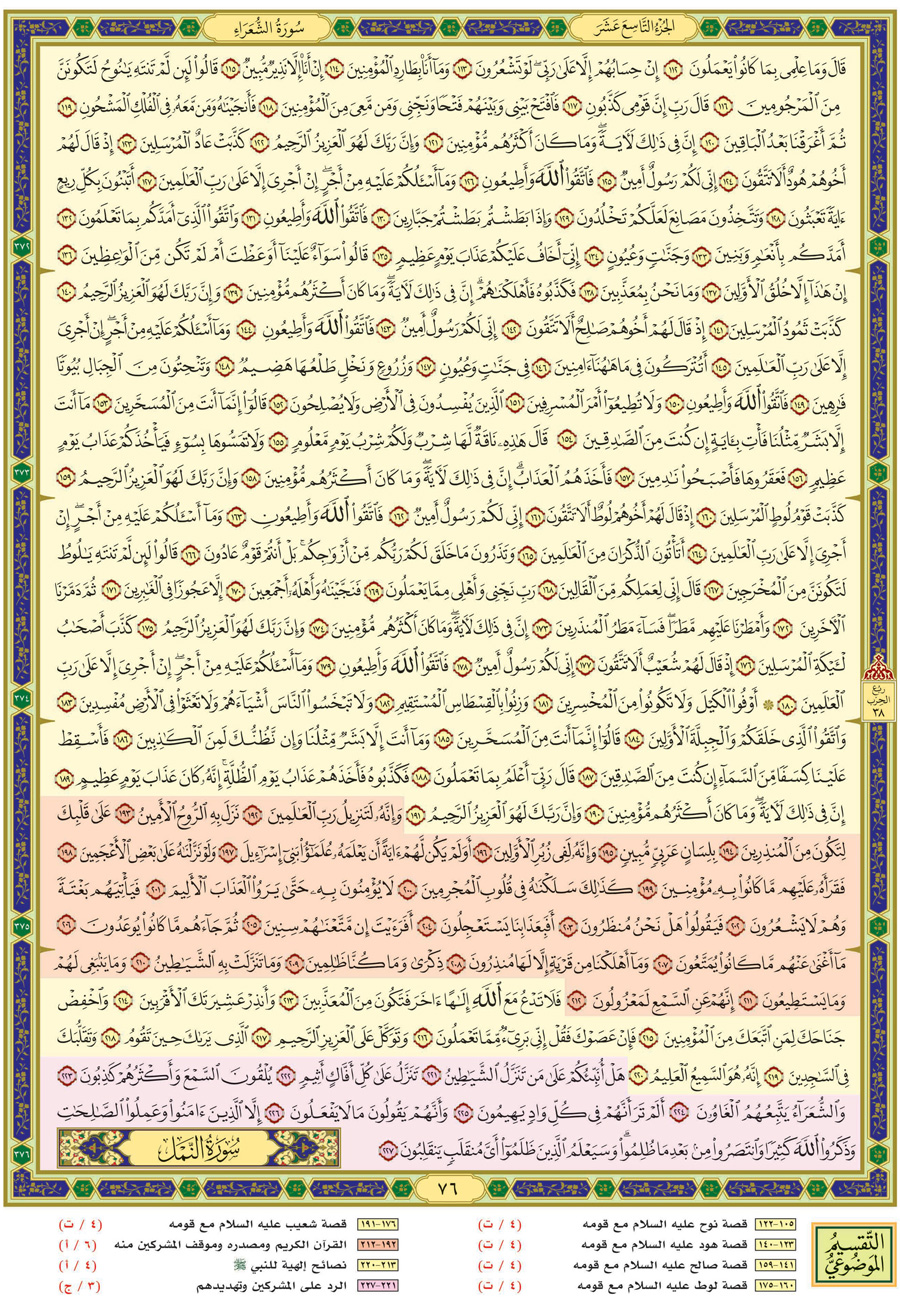 الجُزْءُ التَّاسِعَ عَشَرَ
سُورَةُ الشُّعَرَاءِ
قَالَ وَمَا عِلْمِى بِمَا كَانُوا۟ يَعْمَلُونَ ١١٢ إِنْ حِسَابُهُمْ إِلَّا عَلَىٰ رَبِّى ۖ لَوْ تَشْعُرُونَ ١١٣ وَمَآ أَنَا۠ بِطَارِدِ ٱلْمُؤْمِنِينَ ١١٤ إِنْ أَنَا۠ إِلَّا نَذِيرٌ مُّبِينٌ ١١٥ قَالُوا۟ لَئِن لَّمْ تَنتَهِ يَـٰنُوحُ لَتَكُونَنَّ
مِنَ ٱلْمَرْجُومِينَ ١١٦ قَالَ رَبِّ إِنَّ قَوْمِى كَذَّبُونِ ١١٧ فَٱفْتَحْ بَيْنِى وَبَيْنَهُمْ فَتْحًا وَنَجِّنِى وَمَن مَّعِىَ مِنَ ٱلْمُؤْمِنِينَ ١١٨ فَأَنجَيْنَـٰهُ وَمَن مَّعَهُۥ فِى ٱلْفُلْكِ ٱلْمَشْحُونِ ١١٩
ثُمَّ أَغْرَقْنَا بَعْدُ ٱلْبَاقِينَ ١٢٠ إِنَّ فِى ذَٰلِكَ لَـَٔايَةً ۖ وَمَا كَانَ أَكْثَرُهُم مُّؤْمِنِينَ ١٢١ وَإِنَّ رَبَّكَ لَهُوَ ٱلْعَزِيزُ ٱلرَّحِيمُ ١٢٢ كَذَّبَتْ عَادٌ ٱلْمُرْسَلِينَ ١٢٣ إِذْ قَالَ لَهُمْ
أَخُوهُمْ هُودٌ أَلَا تَتَّقُونَ ١٢٤ إِنِّى لَكُمْ رَسُولٌ أَمِينٌ ١٢٥ فَٱتَّقُوا۟ ٱللَّهَ وَأَطِيعُونِ ١٢٦ وَمَآ أَسْـَٔلُكُمْ عَلَيْهِ مِنْ أَجْرٍ ۖ إِنْ أَجْرِىَ إِلَّا عَلَىٰ رَبِّ ٱلْعَـٰلَمِينَ ١٢٧ أَتَبْنُونَ بِكُلِّ رِيعٍ
ءَايَةً تَعْبَثُونَ ١٢٨ وَتَتَّخِذُونَ مَصَانِعَ لَعَلَّكُمْ تَخْلُدُونَ ١٢٩ وَإِذَا بَطَشْتُم بَطَشْتُمْ جَبَّارِينَ ١٣٠ فَٱتَّقُوا۟ ٱللَّهَ وَأَطِيعُونِ ١٣١ وَٱتَّقُوا۟ ٱلَّذِىٓ أَمَدَّكُم بِمَا تَعْلَمُونَ ١٣٢
أَمَدَّكُم بِأَنْعَـٰمٍ وَبَنِينَ ١٣٣ وَجَنَّـٰتٍ وَعُيُونٍ ١٣٤ إِنِّىٓ أَخَافُ عَلَيْكُمْ عَذَابَ يَوْمٍ عَظِيمٍ ١٣٥ قَالُوا۟ سَوَآءٌ عَلَيْنَآ أَوَعَظْتَ أَمْ لَمْ تَكُن مِّنَ ٱلْوَٰعِظِينَ ١٣٦
إِنْ هَـٰذَآ إِلَّا خُلُقُ ٱلْأَوَّلِينَ ١٣٧ وَمَا نَحْنُ بِمُعَذَّبِينَ ١٣٨ فَكَذَّبُوهُ فَأَهْلَكْنَـٰهُمْ ۗ إِنَّ فِى ذَٰلِكَ لَـَٔايَةً ۖ وَمَا كَانَ أَكْثَرُهُم مُّؤْمِنِينَ ١٣٩ وَإِنَّ رَبَّكَ لَهُوَ ٱلْعَزِيزُ ٱلرَّحِيمُ ١٤٠
كَذَّبَتْ ثَمُودُ ٱلْمُرْسَلِينَ ١٤١ إِذْ قَالَ لَهُمْ أَخُوهُمْ صَـٰلِحٌ أَلَا تَتَّقُونَ ١٤٢ إِنِّى لَكُمْ رَسُولٌ أَمِينٌ ١٤٣ فَٱتَّقُوا۟ ٱللَّهَ وَأَطِيعُونِ ١٤٤ وَمَآ أَسْـَٔلُكُمْ عَلَيْهِ مِنْ أَجْرٍ ۖ إِنْ أَجْرِىَ
إِلَّا عَلَىٰ رَبِّ ٱلْعَـٰلَمِينَ ١٤٥ أَتُتْرَكُونَ فِى مَا هَـٰهُنَآ ءَامِنِينَ ١٤٦ فِى جَنَّـٰتٍ وَعُيُونٍ ١٤٧ وَزُرُوعٍ وَنَخْلٍ طَلْعُهَا هَضِيمٌ ١٤٨ وَتَنْحِتُونَ مِنَ ٱلْجِبَالِ بُيُوتًا
فَـٰرِهِينَ ١٤٩ فَٱتَّقُوا۟ ٱللَّهَ وَأَطِيعُونِ ١٥٠ وَلَا تُطِيعُوٓا۟ أَمْرَ ٱلْمُسْرِفِينَ ١٥١ ٱلَّذِينَ يُفْسِدُونَ فِى ٱلْأَرْضِ وَلَا يُصْلِحُونَ ١٥٢ قَالُوٓا۟ إِنَّمَآ أَنتَ مِنَ ٱلْمُسَحَّرِينَ ١٥٣ مَآ أَنتَ
إِلَّا بَشَرٌ مِّثْلُنَا فَأْتِ بِـَٔايَةٍ إِن كُنتَ مِنَ ٱلصَّـٰدِقِينَ ١٥٤ قَالَ هَـٰذِهِۦ نَاقَةٌ لَّهَا شِرْبٌ وَلَكُمْ شِرْبُ يَوْمٍ مَّعْلُومٍ ١٥٥ وَلَا تَمَسُّوهَا بِسُوٓءٍ فَيَأْخُذَكُمْ عَذَابُ يَوْمٍ
عَظِيمٍ ١٥٦ فَعَقَرُوهَا فَأَصْبَحُوا۟ نَـٰدِمِينَ ١٥٧ فَأَخَذَهُمُ ٱلْعَذَابُ ۗ إِنَّ فِى ذَٰلِكَ لَـَٔايَةً ۖ وَمَا كَانَ أَكْثَرُهُم مُّؤْمِنِينَ ١٥٨ وَإِنَّ رَبَّكَ لَهُوَ ٱلْعَزِيزُ ٱلرَّحِيمُ ١٥٩
كَذَّبَتْ قَوْمُ لُوطٍ ٱلْمُرْسَلِينَ ١٦٠ إِذْ قَالَ لَهُمْ أَخُوهُمْ لُوطٌ أَلَا تَتَّقُونَ ١٦١ إِنِّى لَكُمْ رَسُولٌ أَمِينٌ ١٦٢ فَٱتَّقُوا۟ ٱللَّهَ وَأَطِيعُونِ ١٦٣ وَمَآ أَسْـَٔلُكُمْ عَلَيْهِ مِنْ أَجْرٍ ۖ إِنْ
أَجْرِىَ إِلَّا عَلَىٰ رَبِّ ٱلْعَـٰلَمِينَ ١٦٤ أَتَأْتُونَ ٱلذُّكْرَانَ مِنَ ٱلْعَـٰلَمِينَ ١٦٥ وَتَذَرُونَ مَا خَلَقَ لَكُمْ رَبُّكُم مِّنْ أَزْوَٰجِكُم ۚ بَلْ أَنتُمْ قَوْمٌ عَادُونَ ١٦٦ قَالُوا۟ لَئِن لَّمْ تَنتَهِ يَـٰلُوطُ
لَتَكُونَنَّ مِنَ ٱلْمُخْرَجِينَ ١٦٧ قَالَ إِنِّى لِعَمَلِكُم مِّنَ ٱلْقَالِينَ ١٦٨ رَبِّ نَجِّنِى وَأَهْلِى مِمَّا يَعْمَلُونَ ١٦٩ فَنَجَّيْنَـٰهُ وَأَهْلَهُۥٓ أَجْمَعِينَ ١٧٠ إِلَّا عَجُوزًا فِى ٱلْغَـٰبِرِينَ ١٧١ ثُمَّ دَمَّرْنَا
ٱلْـَٔاخَرِينَ ١٧٢ وَأَمْطَرْنَا عَلَيْهِم مَّطَرًا ۖ فَسَآءَ مَطَرُ ٱلْمُنذَرِينَ ١٧٣ إِنَّ فِى ذَٰلِكَ لَـَٔايَةً ۖ وَمَا كَانَ أَكْثَرُهُم مُّؤْمِنِينَ ١٧٤ وَإِنَّ رَبَّكَ لَهُوَ ٱلْعَزِيزُ ٱلرَّحِيمُ ١٧٥ كَذَّبَ أَصْحَـٰبُ
لْـَٔيْكَةِ ٱلْمُرْسَلِينَ ١٧٦ إِذْ قَالَ لَهُمْ شُعَيْبٌ أَلَا تَتَّقُونَ ١٧٧ إِنِّى لَكُمْ رَسُولٌ أَمِينٌ ١٧٨ فَٱتَّقُوا۟ ٱللَّهَ وَأَطِيعُونِ ١٧٩ وَمَآ أَسْـَٔلُكُمْ عَلَيْهِ مِنْ أَجْرٍ ۖ إِنْ أَجْرِىَ إِلَّا عَلَىٰ رَبِّ
ٱلْعَـٰلَمِينَ ١٨٠ ۞ أَوْفُوا۟ ٱلْكَيْلَ وَلَا تَكُونُوا۟ مِنَ ٱلْمُخْسِرِينَ ١٨١ وَزِنُوا۟ بِٱلْقِسْطَاسِ ٱلْمُسْتَقِيمِ ١٨٢ وَلَا تَبْخَسُوا۟ ٱلنَّاسَ أَشْيَآءَهُمْ وَلَا تَعْثَوْا۟ فِى ٱلْأَرْضِ مُفْسِدِينَ ١٨٣
وَٱتَّقُوا۟ ٱلَّذِى خَلَقَكُمْ وَٱلْجِبِلَّةَ ٱلْأَوَّلِينَ ١٨٤ قَالُوٓا۟ إِنَّمَآ أَنتَ مِنَ ٱلْمُسَحَّرِينَ ١٨٥ وَمَآ أَنتَ إِلَّا بَشَرٌ مِّثْلُنَا وَإِن نَّظُنُّكَ لَمِنَ ٱلْكَـٰذِبِينَ ١٨٦ فَأَسْقِطْ
عَلَيْنَا كِسَفًا مِّنَ ٱلسَّمَآءِ إِن كُنتَ مِنَ ٱلصَّـٰدِقِينَ ١٨٧ قَالَ رَبِّىٓ أَعْلَمُ بِمَا تَعْمَلُونَ ١٨٨ فَكَذَّبُوهُ فَأَخَذَهُمْ عَذَابُ يَوْمِ ٱلظُّلَّةِ ۚ إِنَّهُۥ كَانَ عَذَابَ يَوْمٍ عَظِيمٍ ١٨٩
إِنَّ فِى ذَٰلِكَ لَـَٔايَةً ۖ وَمَا كَانَ أَكْثَرُهُم مُّؤْمِنِينَ ١٩٠ وَإِنَّ رَبَّكَ لَهُوَ ٱلْعَزِيزُ ٱلرَّحِيمُ ١٩١ وَإِنَّهُۥ لَتَنزِيلُ رَبِّ ٱلْعَـٰلَمِينَ ١٩٢ نَزَلَ بِهِ ٱلرُّوحُ ٱلْأَمِينُ ١٩٣ عَلَىٰ قَلْبِكَ
لِتَكُونَ مِنَ ٱلْمُنذِرِينَ ١٩٤ بِلِسَانٍ عَرَبِىٍّ مُّبِينٍ ١٩٥ وَإِنَّهُۥ لَفِى زُبُرِ ٱلْأَوَّلِينَ ١٩٦ أَوَلَمْ يَكُن لَّهُمْ ءَايَةً أَن يَعْلَمَهُۥ عُلَمَـٰٓؤُا۟ بَنِىٓ إِسْرَٰٓءِيلَ ١٩٧ وَلَوْ نَزَّلْنَـٰهُ عَلَىٰ بَعْضِ ٱلْأَعْجَمِينَ ١٩٨
فَقَرَأَهُۥ عَلَيْهِم مَّا كَانُوا۟ بِهِۦ مُؤْمِنِينَ ١٩٩ كَذَٰلِكَ سَلَكْنَـٰهُ فِى قُلُوبِ ٱلْمُجْرِمِينَ ٢٠٠ لَا يُؤْمِنُونَ بِهِۦ حَتَّىٰ يَرَوُا۟ ٱلْعَذَابَ ٱلْأَلِيمَ ٢٠١ فَيَأْتِيَهُم بَغْتَةً
وَهُمْ لَا يَشْعُرُونَ ٢٠٢ فَيَقُولُوا۟ هَلْ نَحْنُ مُنظَرُونَ ٢٠٣ أَفَبِعَذَابِنَا يَسْتَعْجِلُونَ ٢٠٤ أَفَرَءَيْتَ إِن مَّتَّعْنَـٰهُمْ سِنِينَ ٢٠٥ ثُمَّ جَآءَهُم مَّا كَانُوا۟ يُوعَدُونَ ٢٠٦
مَآ أَغْنَىٰ عَنْهُم مَّا كَانُوا۟ يُمَتَّعُونَ ٢٠٧ وَمَآ أَهْلَكْنَا مِن قَرْيَةٍ إِلَّا لَهَا مُنذِرُونَ ٢٠٨ ذِكْرَىٰ وَمَا كُنَّا ظَـٰلِمِينَ ٢٠٩ وَمَا تَنَزَّلَتْ بِهِ ٱلشَّيَـٰطِينُ ٢١٠ وَمَا يَنۢبَغِى لَهُمْ
وَمَا يَسْتَطِيعُونَ ٢١١ إِنَّهُمْ عَنِ ٱلسَّمْعِ لَمَعْزُولُونَ ٢١٢ فَلَا تَدْعُ مَعَ ٱللَّهِ إِلَـٰهًا ءَاخَرَ فَتَكُونَ مِنَ ٱلْمُعَذَّبِينَ ٢١٣ وَأَنذِرْ عَشِيرَتَكَ ٱلْأَقْرَبِينَ ٢١٤ وَٱخْفِضْ
جَنَاحَكَ لِمَنِ ٱتَّبَعَكَ مِنَ ٱلْمُؤْمِنِينَ ٢١٥ فَإِنْ عَصَوْكَ فَقُلْ إِنِّى بَرِىٓءٌ مِّمَّا تَعْمَلُونَ ٢١٦ وَتَوَكَّلْ عَلَى ٱلْعَزِيزِ ٱلرَّحِيمِ ٢١٧ ٱلَّذِى يَرَىٰكَ حِينَ تَقُومُ ٢١٨ وَتَقَلُّبَكَ
فِى ٱلسَّـٰجِدِينَ ٢١٩ إِنَّهُۥ هُوَ ٱلسَّمِيعُ ٱلْعَلِيمُ ٢٢٠ هَلْ أُنَبِّئُكُمْ عَلَىٰ مَن تَنَزَّلُ ٱلشَّيَـٰطِينُ ٢٢١ تَنَزَّلُ عَلَىٰ كُلِّ أَفَّاكٍ أَثِيمٍ ٢٢٢ يُلْقُونَ ٱلسَّمْعَ وَأَكْثَرُهُمْ كَـٰذِبُونَ ٢٢٣
وَٱلشُّعَرَآءُ يَتَّبِعُهُمُ ٱلْغَاوُۥنَ ٢٢٤ أَلَمْ تَرَ أَنَّهُمْ فِى كُلِّ وَادٍ يَهِيمُونَ ٢٢٥ وَأَنَّهُمْ يَقُولُونَ مَا لَا يَفْعَلُونَ ٢٢٦ إِلَّا ٱلَّذِينَ ءَامَنُوا۟ وَعَمِلُوا۟ ٱلصَّـٰلِحَـٰتِ
وَذَكَرُوا۟ ٱللَّهَ كَثِيرًا وَٱنتَصَرُوا۟ مِنۢ بَعْدِ مَا ظُلِمُوا۟ ۗ وَسَيَعْلَمُ ٱلَّذِينَ ظَلَمُوٓا۟ أَىَّ مُنقَلَبٍ يَنقَلِبُونَ ٢٢٧
سُورَةُ النَّمْلِ
ربع
الحزب
٣٨
٣٧٢
٣٧٣
٣٧٤
٣٧٥
٣٧٦
٧٦
التَّقسِيمُ
المَوضُوعِيُّ
١٠٥-١٢٢ قصة نوح عليه السلام مع قومه (٤ / ت)
١٢٣-١٤٠ قصة هود عليه السلام مع قومه (٤ / ت)
١٤١-١٥٩ قصة صالح عليه السلام مع قومه (٤ / ت)
١٦٠-١٧٥ قصة لوط عليه السلام مع قومه (٤ / ت)
١٧٦-١٩١ قصة شعيب عليه السلام مع قومه (٤ / ت)
١٩٢-٢١٢ القرآن الكريم ومصدره وموقف المشركين منه (٦ / أ)
٢١٣-٢٢٠ نصائح إلهية للنبي ﷺ (٤ / أ)
٢٢١-٢٢٧ الرد على المشركين وتهديدهم (٣ / ج)